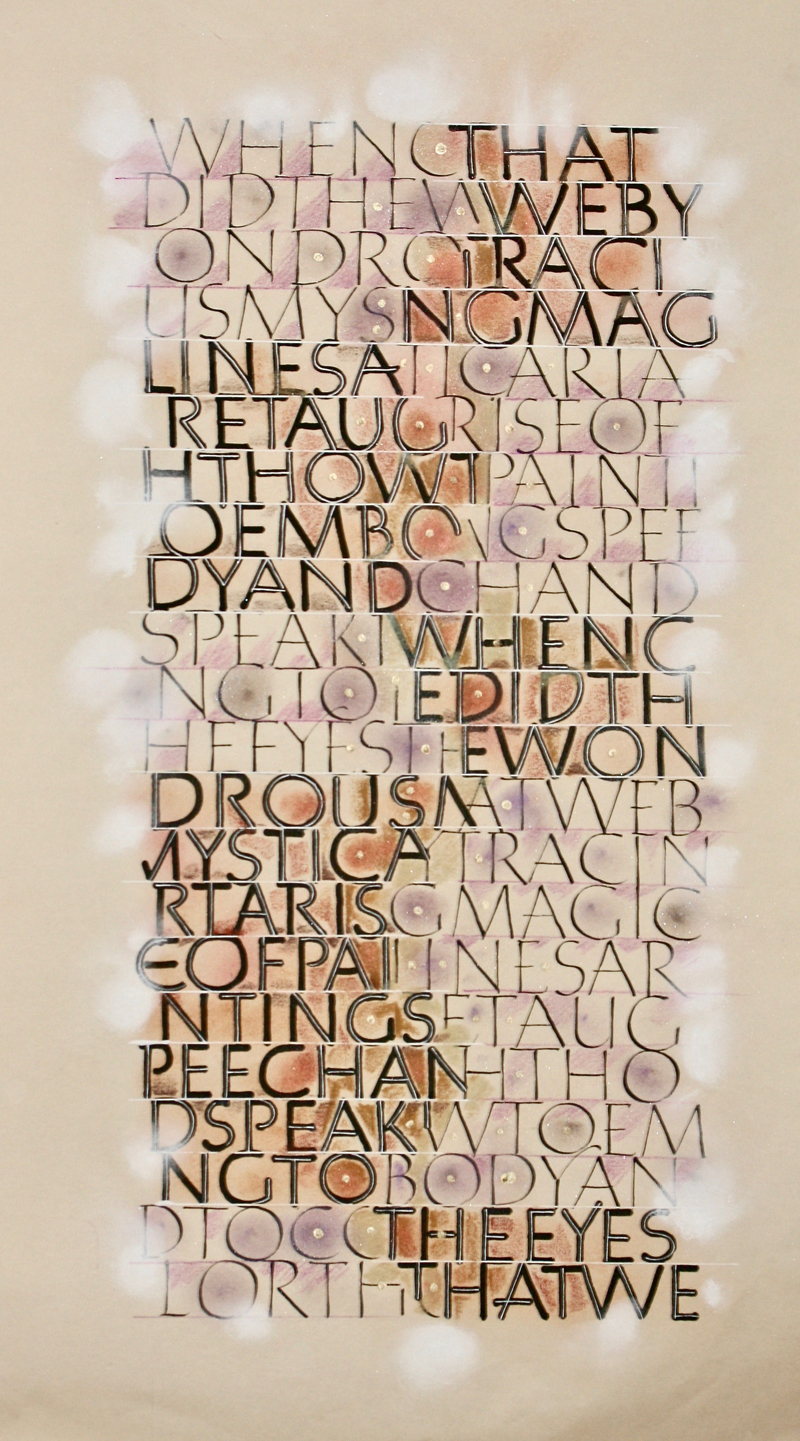 WHENCTHAT
DIDTHEWWEBY
ONDROTRACI
USMYSNGMAG
LINESATICARTA
RETAUGRISEOF
HTHOWTPAINTI
OEMBONGSPEE
DYANDCHAND
SPEAKIWHENC
NGTOEDIDTH
HEEYESTHEWON
DROUSMATWEB
MYSTICAYTRACIN
RTARISGMAGIC
EOFPAILINESAR
NTINGSETAUG
PEECHANHTHO
DSPEAKIWTOEM
NGTOBODYAN
DTOCOTHEEYES
LORTHTHATWE